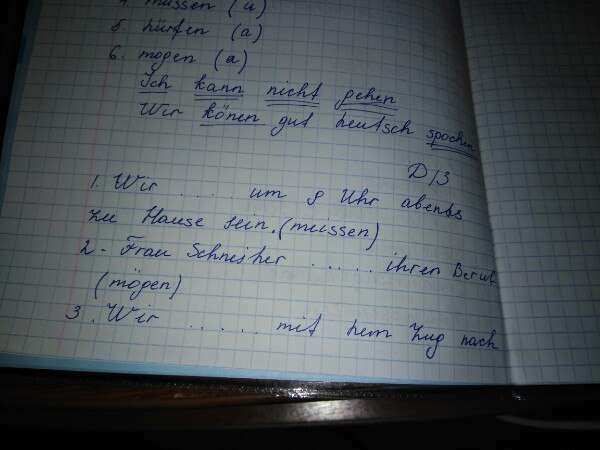 4. müssen (u)
5. dürfen (a)
6. mögen (a)
Ich kann nicht gehen
Wir könen gut deutsch spochen
D/3
1. Wir .... um 8 Uhr abends
zu Hause sein. (müissen)
2 - Frau Schneider ..... ihren Beruf
(mögen)
3. Wir ..... mit dem Zug nach